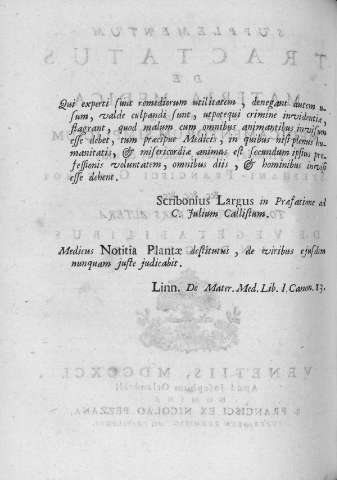 Qui experti sunt remediorum utilitatem, denegant autem u-
sum, valde culpandi sunt, utpotequi crimine invidentiæ
flagrant, quod malum cum omnibus animantibus invisum
esse debet, tum præcipue Medicis, in quibus nisi plenus hu-
manitatis, & misericordiæ animus est secundum ipsius pro-
fessionis voluntatem, omnibus diis, & hominibus invisi
esse debent.
Scribonius Largus in Præfatione ad
C. Julium Callistum.
Medicus Notitia Plantæ destitutus, de viribus ejusdem
nunquam juste judicabit.
Linn. De Mater. Med. Lib. I. Canon. 13.